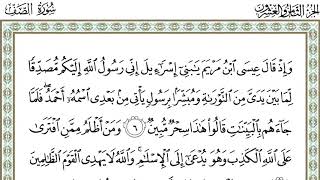 الجزء الثامن والعشرون سورة الصف
وَإِذْ قَالَ عِيسَى ابْنُ مَرْيَمَ يَٰبَنِىٓ إِسْرَٰٓءِيلَ إِنِّى رَسُولُ اللَّهِ إِلَيْكُم مُّصَدِّقًا
لِّمَا بَيْنَ يَدَىَّ مِنَ التَّوْرَىٰةِ وَمُبَشِّرًۢا بِرَسُولٍ يَأْتِى مِنۢ بَعْدِى اسْمُهُۥٓ أَحْمَدُ ۖ فَلَمَّا
جَآءَهُم بِالْبَيِّنَٰتِ قَالُوا۟ هَٰذَا سِحْرٌ مُّبِينٌ ٦ وَمَنْ أَظْلَمُ مِمَّنِ افْتَرَىٰ
عَلَى اللَّهِ الْكَذِبَ وَهُوَ يُدْعَىٰٓ إِلَى الْإِسْلَٰمِ ۚ وَاللَّهُ لَا يَهْدِى الْقَوْمَ الظَّٰلِمِينَ